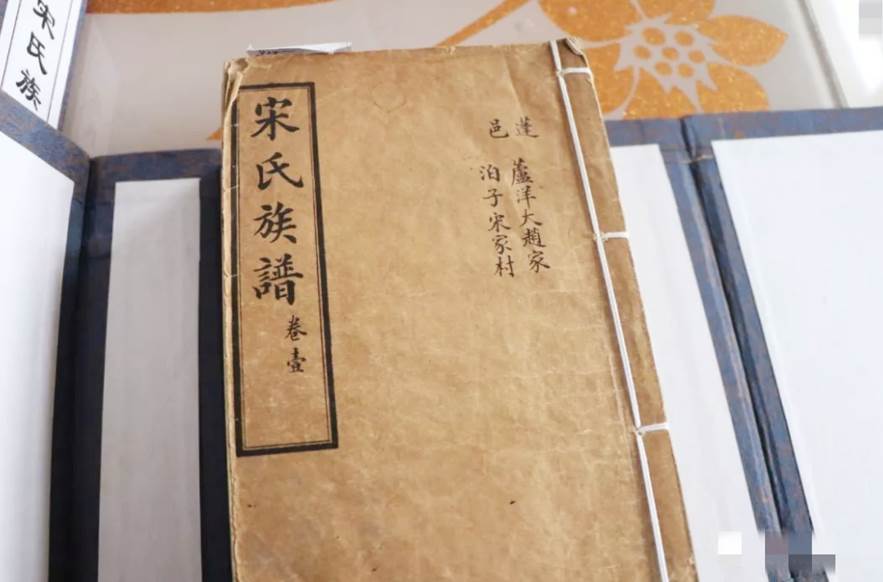 宋氏族譜
卷壹
蓬
蘆洋大趙家
邑
泊子宋家村
宋氏族